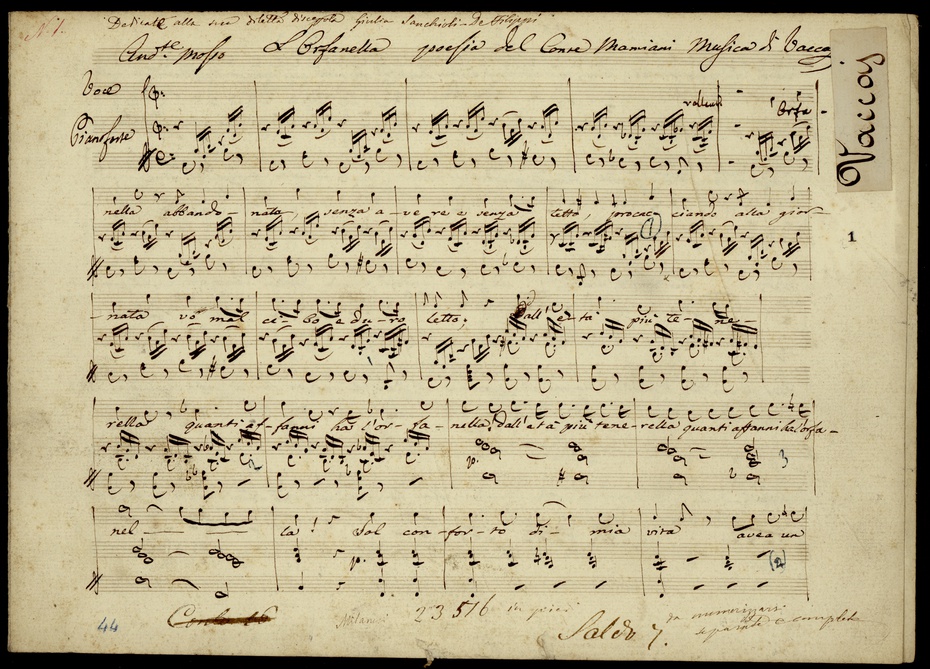 N. 1.
Dedicata alla sua diletta discepola Giulia Sanchioli-De Filippi
And.te mosso L'Orfanella poesia del Conte Mamiani Musica di Vaccaj
Vaccaj
Voce
Pianoforte
Orfa
nella abbando- nata senza a- vere e senza tetto, procac- ciando alla gior-
1
nata vò mal cibo e du- ro letto; Dall' e- tà più te- ne-
rella quanti af- fanni ha l'or- fa- nella! Dall' età più tene- rella quanti affanni ha l'orfa-
3
nel- la! Sol con- for- to di mia vita avea un
(2)
44
Milano
23516
Saldo